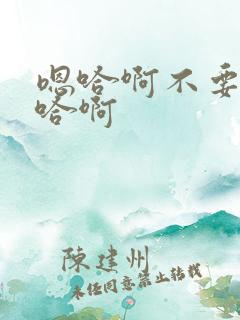 嗯哈啊不要
哈啊
陳建州
未经同意禁止转载